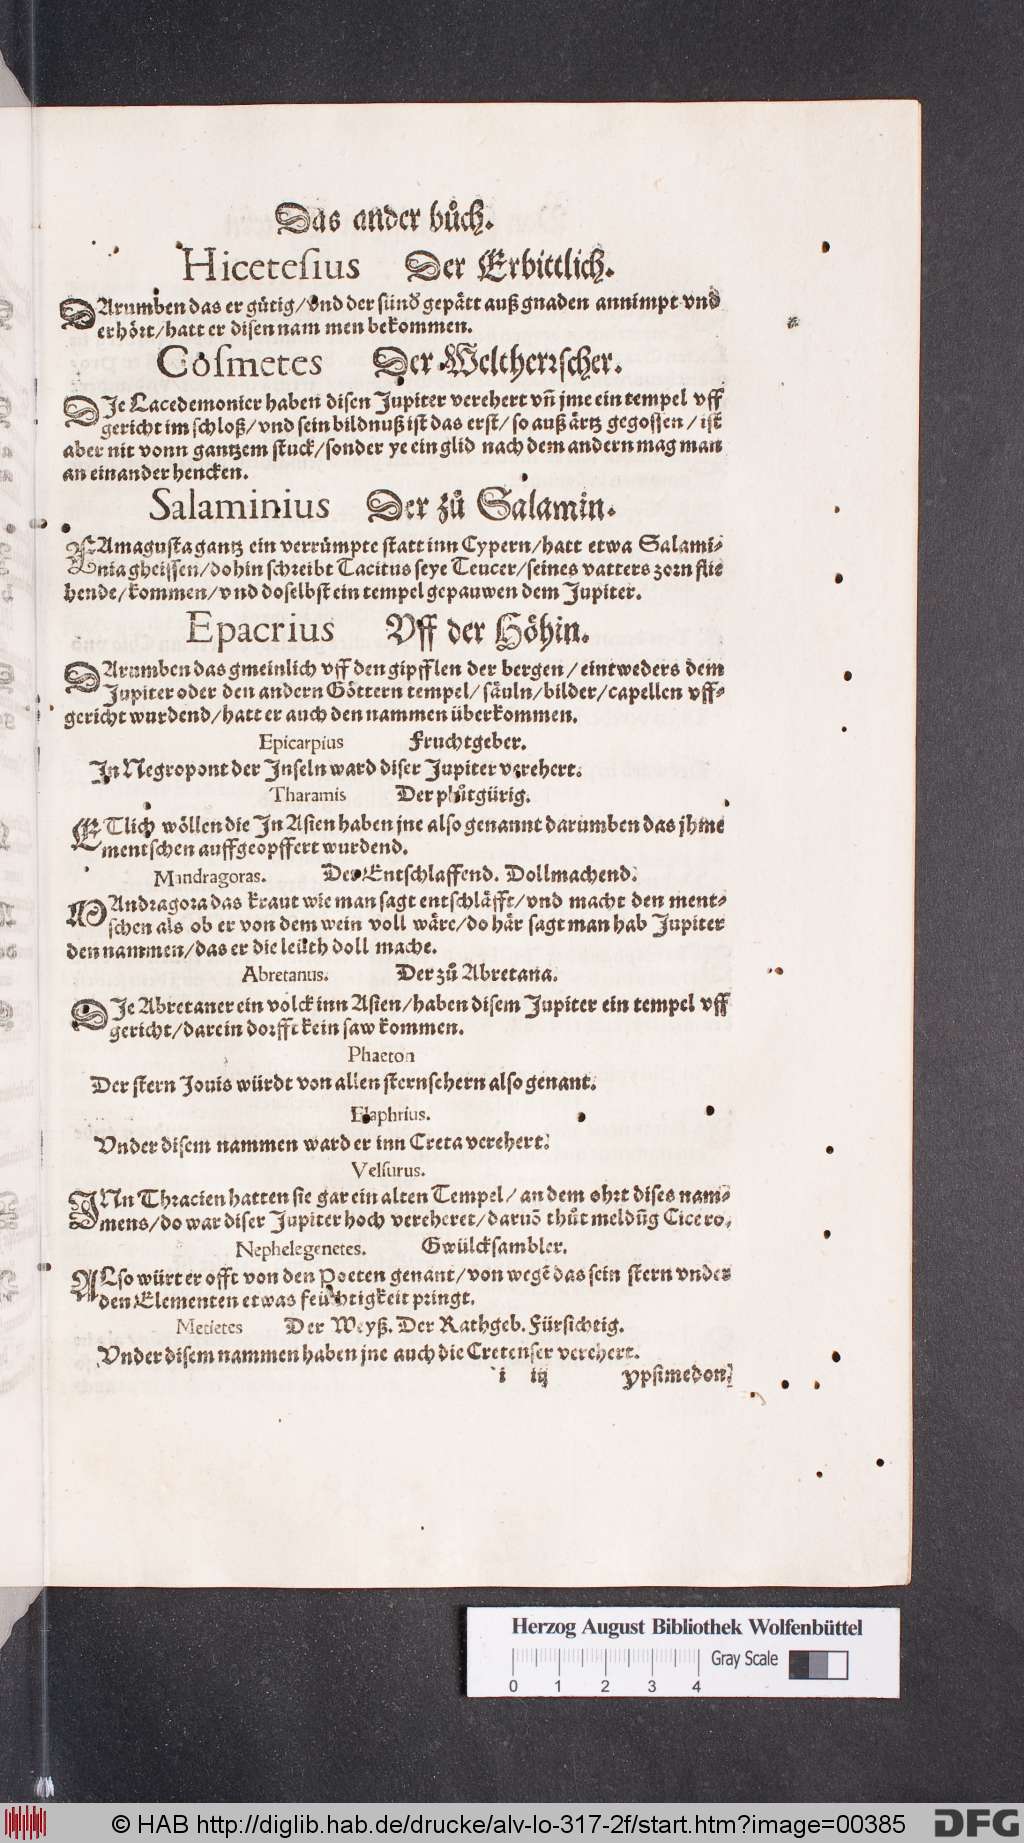 Das ander bůch.
Hicetesius Der Erbittlich.
DArumben das er gütig/vnd der sünd gepätt auß gnaden annimpt vnd
erhört/hatt er disen nam men bekommen.
Cosmetes Der Weltherrscher.
DJe Lacedemonier haben disen Jupiter verehert vñ jme ein tempel vff
gericht im schloß/vnd sein bildnuß ist das erst/so auß ärtz gegossen/ist
aber nit vonn gantzem stuck/sonder ye ein glid nach dem andern mag man
an einander hencken.
Salaminius Der zů Salamin.
FAmagusta gantz ein verrümpte statt inn Cypern/hatt etwa Salami-
nia gheissen/dohin schreibt Tacitus seye Teucer/seines vatters zorn flie
hende/kommen/vnd doselbst ein tempel gepauwen dem Jupiter.
Epacrius Vff der Höhin.
DArumben das gmeinlich vff den gipfflen der bergen/eintweders dem
Jupiter oder den andern Göttern tempel/säuln/bilder/capellen vff-
gericht wurdend/hatt er auch den nammen überkommen.
Epicarpius Fruchtgeber.
Jn Negropont der Jnseln ward diser Jupiter verehert.
Tharamis Der plůtgürig.
ETlich wöllen die Jn Asien haben jne also genannt darumben das jhme
mentschen auffgeopffert wurdend.
Mandragoras. Der Entschlaffend. Dollmachend.
MAndragora das kraut wie man sagt entschläfft/vnd macht den ment-
schen als ob er von dem wein voll wäre/do här sagt man hab Jupiter
den nammen/das er die leüth doll mache.
Abretanus. Der zů Abretana.
DJe Abretaner ein volck inn Asien/haben disem Jupiter ein tempel vff
gericht/darein dorfft kein saw kommen.
Phaeton
Der stern Jouis würdt von allen sternsehern also genant.
Elaphrius.
Vnder disem nammen ward er inn Creta verehert.
Velsurus.
JNn Thracien hatten sie gar ein alten Tempel/an dem ohrt dises nam-
mens/do war diser Jupiter hoch vereheret/daruõ thůt meldũg Cicero.
Nephelegenetes. Gwülcksambler.
ALso würt er offt von den Poeten genant/von wegẽ das sein stern vnder
den Elementen etwas feüchtigkeit pringt.
Metietes Der Weyß. Der Rathgeb. Fürsichtig.
Vnder disem nammen haben jne auch die Cretenser verehert.
i iij ypsimedon.
Herzog August Bibliothek Wolfenbüttel
Gray Scale
0 1 2 3 4
© HAB http://diglib.hab.de/drucke/alv-lo-317-2f/start.htm?image=00385 DFG